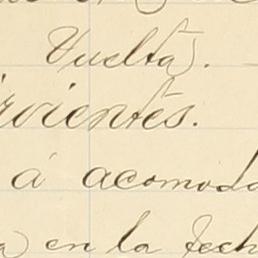 Vuelta).
rvientes.
á acomoda
a en la fech